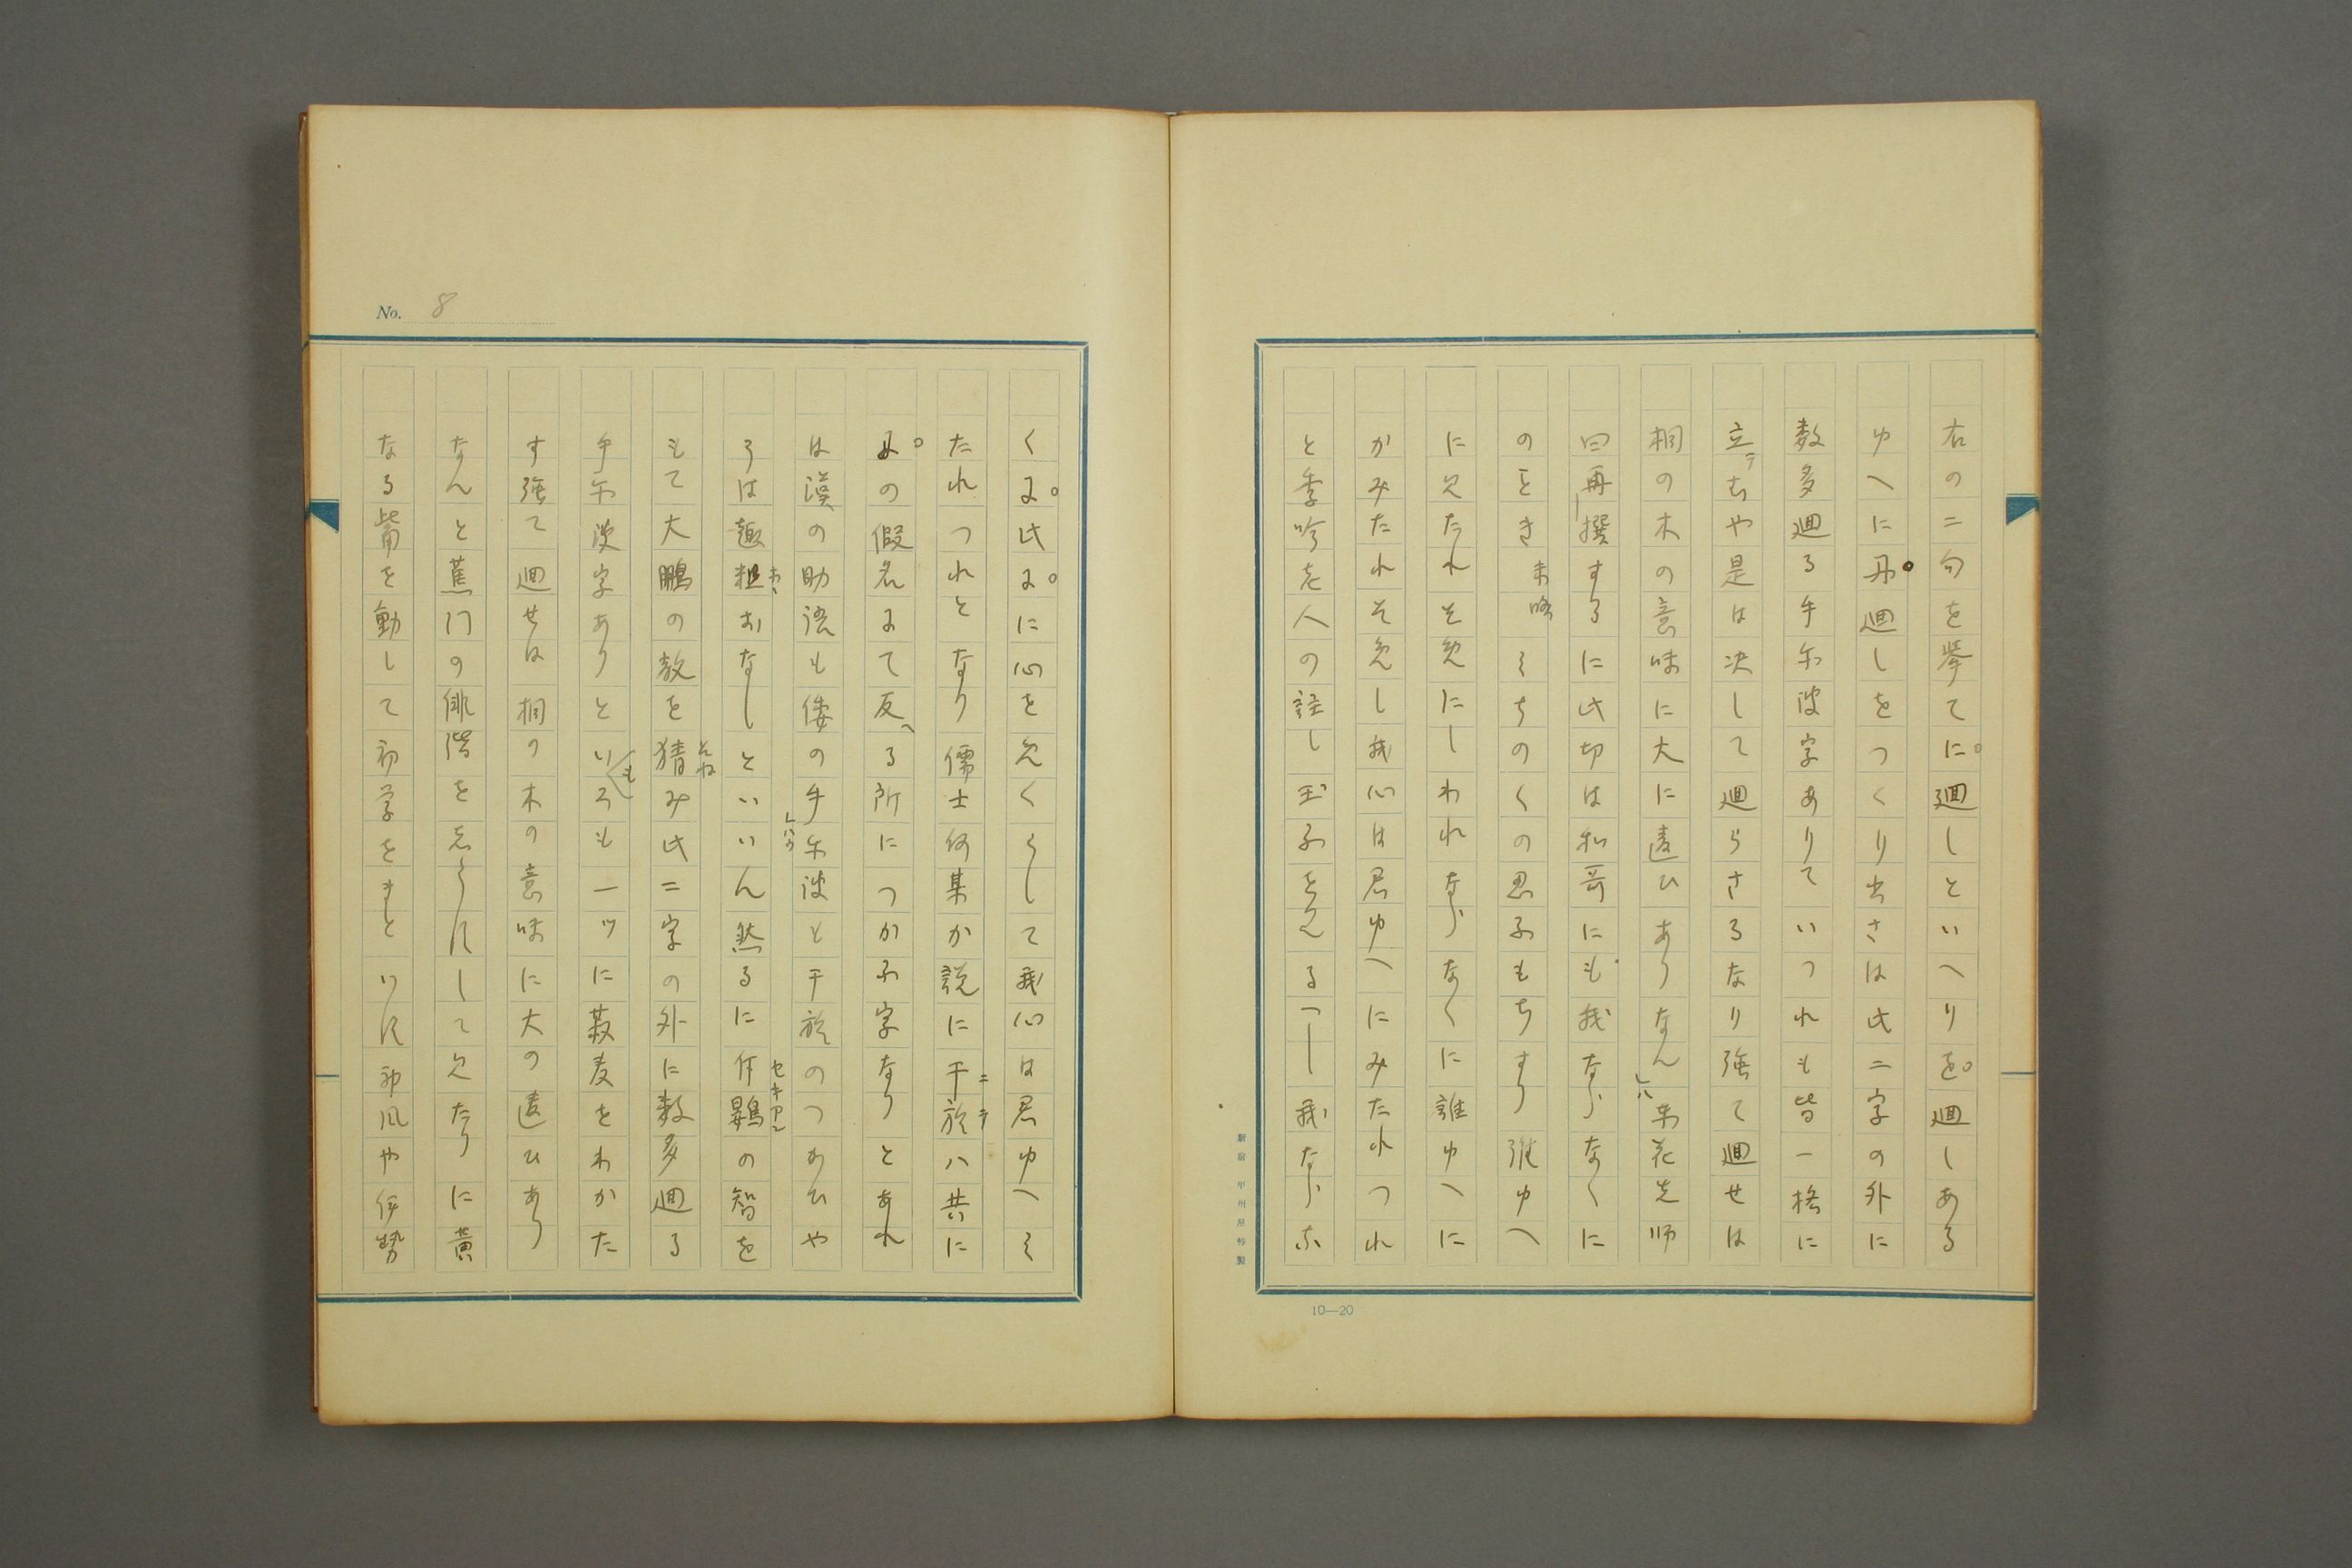 右の二句を挙てに。廻しといへりを。廻しある
ゆへに 廻しをつくり出さは此二字の外に
数多廻る手尓波字ありていつれも皆一格に
立テむや是は決して廻らさるなり強て廻せは
桐の木の意味に大に違ひありなん 花先師
曰再撰するに此切は和哥にも我ならなくに
のことき 末略 みちのくの忍ふもちすり誰ゆへ
に见たれそ免にしわれならなくに誰ゆへに
かみたれそ免し我心は君ゆへにみたれつれ
と季吟老人の註し玉ふをみるへし我なら
くに。此に。に心を见くらして我心は君ゆへみ
たれつれとなり儒士何某か説に干於ハ共に
ニ ヲ
の假名にて反へる所につかふ字なりとあれ
は漢の助語も倭の手尓波も干於のつかひや
うは趣 おなしといいん然るに斥鷃の智を
セキアン
もて大鵬の教を猜み此二字の外に数多廻る
そね
手尓波字ありといふも一ツに菽麦をわかた
す強て廻せは桐の木の意味に大の違ひあり
なんと蕉門の俳諧を して见たりに黄
なる觜を動して初学をまと 神風や伊勢
No. 8
10—20
新宿 甲州屋特製